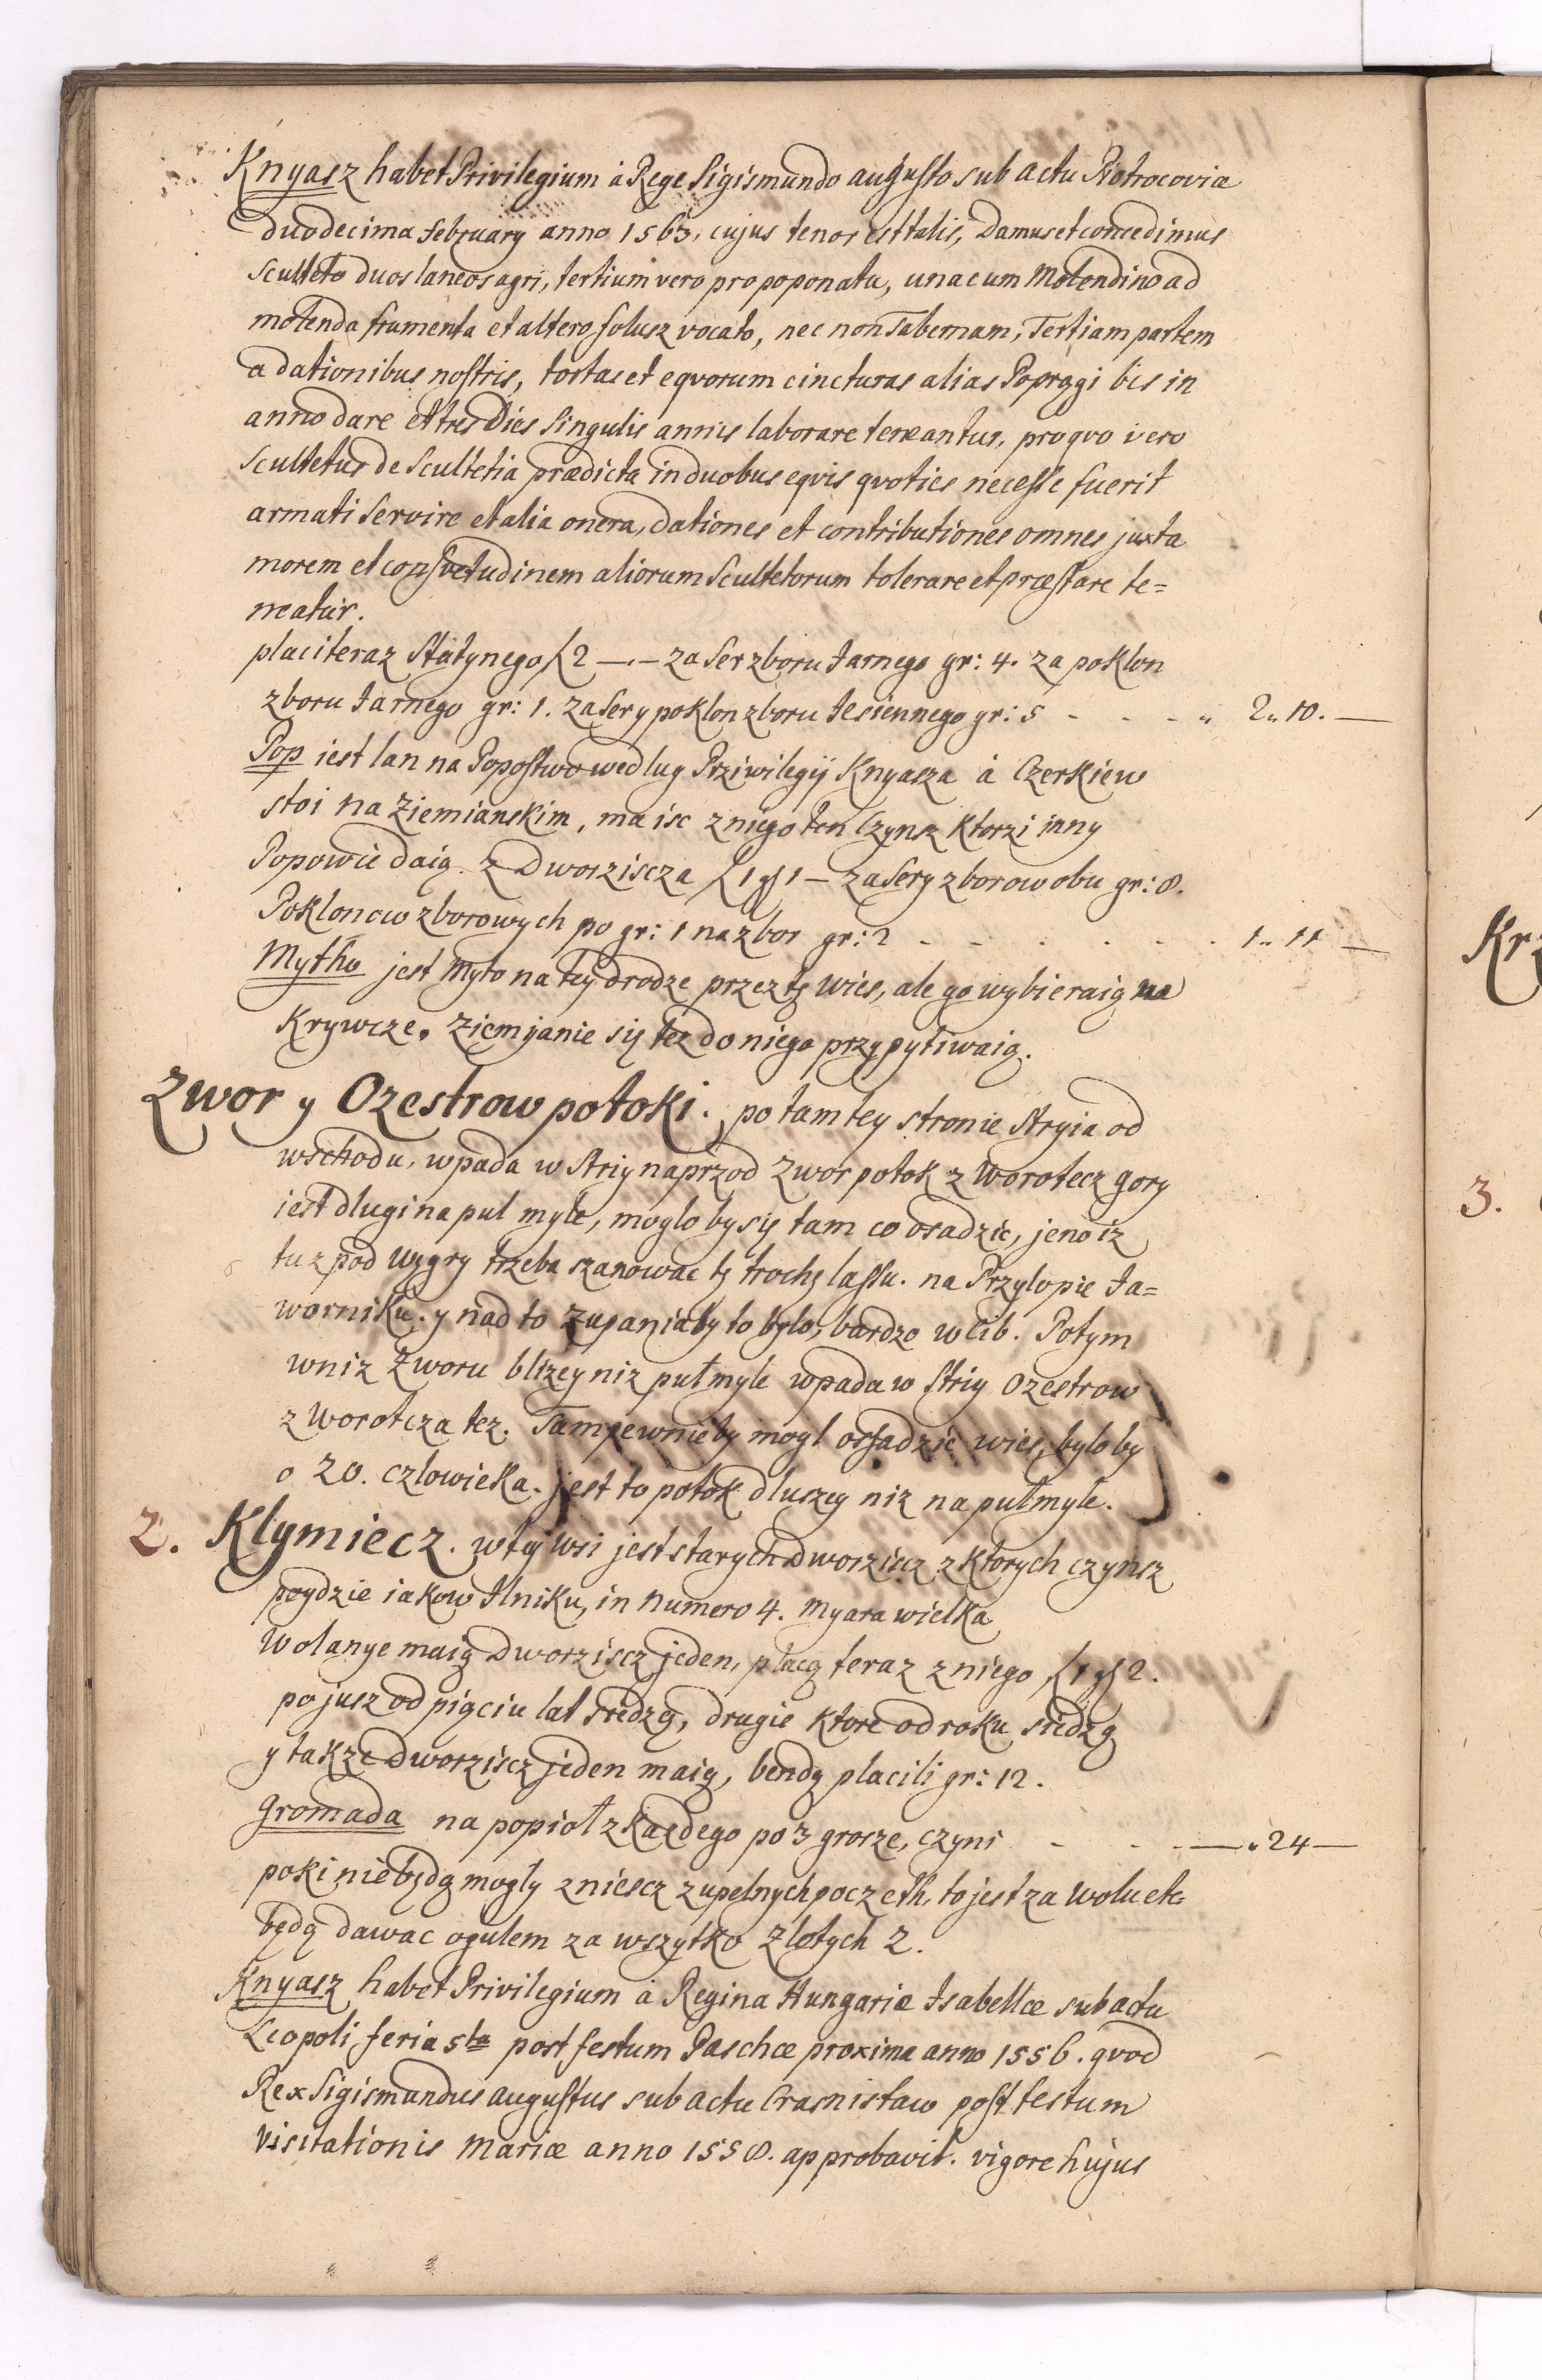 Knyasz habet Privilegium à Rege Sigismundo augusto sub actu Piotrocoviæ
duodecima february anno 1563, cujus tenor est talis, Damus et concedimus
Sculteto duos laneos agri, tertium vero pro poponatu, una cum Molendino ad
molenda frumenta et altero folusz vocato, nec non Tabernam, Tertiam partem
a dationibus nostris, tortas et eqvorum cincturas alias Poprągi bis in
anno dare et tres Dies singulis annis laborare teneantur, pro qvo vero
Scultetus de Scultetia prædicta in duobus eqvis qvoties necesse fuerit
armati servire et alia onera, dationes et contributiones omnes juxta
morem et consvetudinem aliorum Scultetorum tolerare et præstare te=
neatur.
placi teraz Statynego 2 —.— za Ser zboru Jarnego gr: 4. za poklon
zboru Jarnego gr: 1. za Ser y poklon zboru Jesiennego gr: 5 - - - „ 2„ 10. —
Pop iest lan na Popostwo wedlug Prziwilegij Knyasza à Czerkiew
stoi na Ziemianskim, ma isc z niego ten Czynsz ktorzi inny
Popowie daią. z Dworziscza 1 1 — za Sery zborow obu gr: 8.
Poklonow zborowych po gr: 1 na zbor gr: 2 - - - - - - 1„ 11 —
Mytho jest Myto na tey drodze przez tę wies, ale go wybieraią na
Krywcze. Ziemijanie się tez do niego przypytiwaią.
Zwor y Ozestrow potoki. po tamtey stronie Stryia od
wschodu, wpada w Striy naprzod Zwor potok z Worotecz gory
iest dlugi na pul myle, moglo by się tam co osadzic, jeno iz
tu z pod Węgry trzeba szanowac tę trochę lassu. na Przylopie Ja=
worniku. y nad to Zupaniaby to bylo, bardzo w Lib. Potym
wniz Zworu blizey niz puł myle wpada w Striy Ozestrow
z Worotcza tez. Tam pewnie by mogl ossadzić wies, bylo by
o 20. czlowieka. jest to potok dluszey niz na puł myle.
2. Klymiecz. w tey wsi jest starych dworziscz z ktorych czynsz
poydzie iako w Ilniku, in numero 4. Myara wielka
Wolanye maią Dworziscz jeden, płacą teraz z niego 1 2.
po jusz od pięciu lat siedzą, drugie ktore od roku siedzą
y takze Dworziscz jeden maią, bendą placili gr: 12.
Gromada na popioł z kazdego po 3 grosze, czyni - - - — „ 24 —
poki nie będą mogły zniescz zupelnych poczeth, to jest za Wolu etc
będą dawac ogulem za wszytko Zlotych 2.
Knyasz habet Privilegium à Regina Hungariæ Isabellæ sub actu
Leopoli feria 5ta post festum Paschæ proxima anno 1556. qvod
Rex Sigismundus augustus sub actu Crasnistaw post festum
Visitationis Mariæ anno 1558. approbavit. vigore hujus
3.